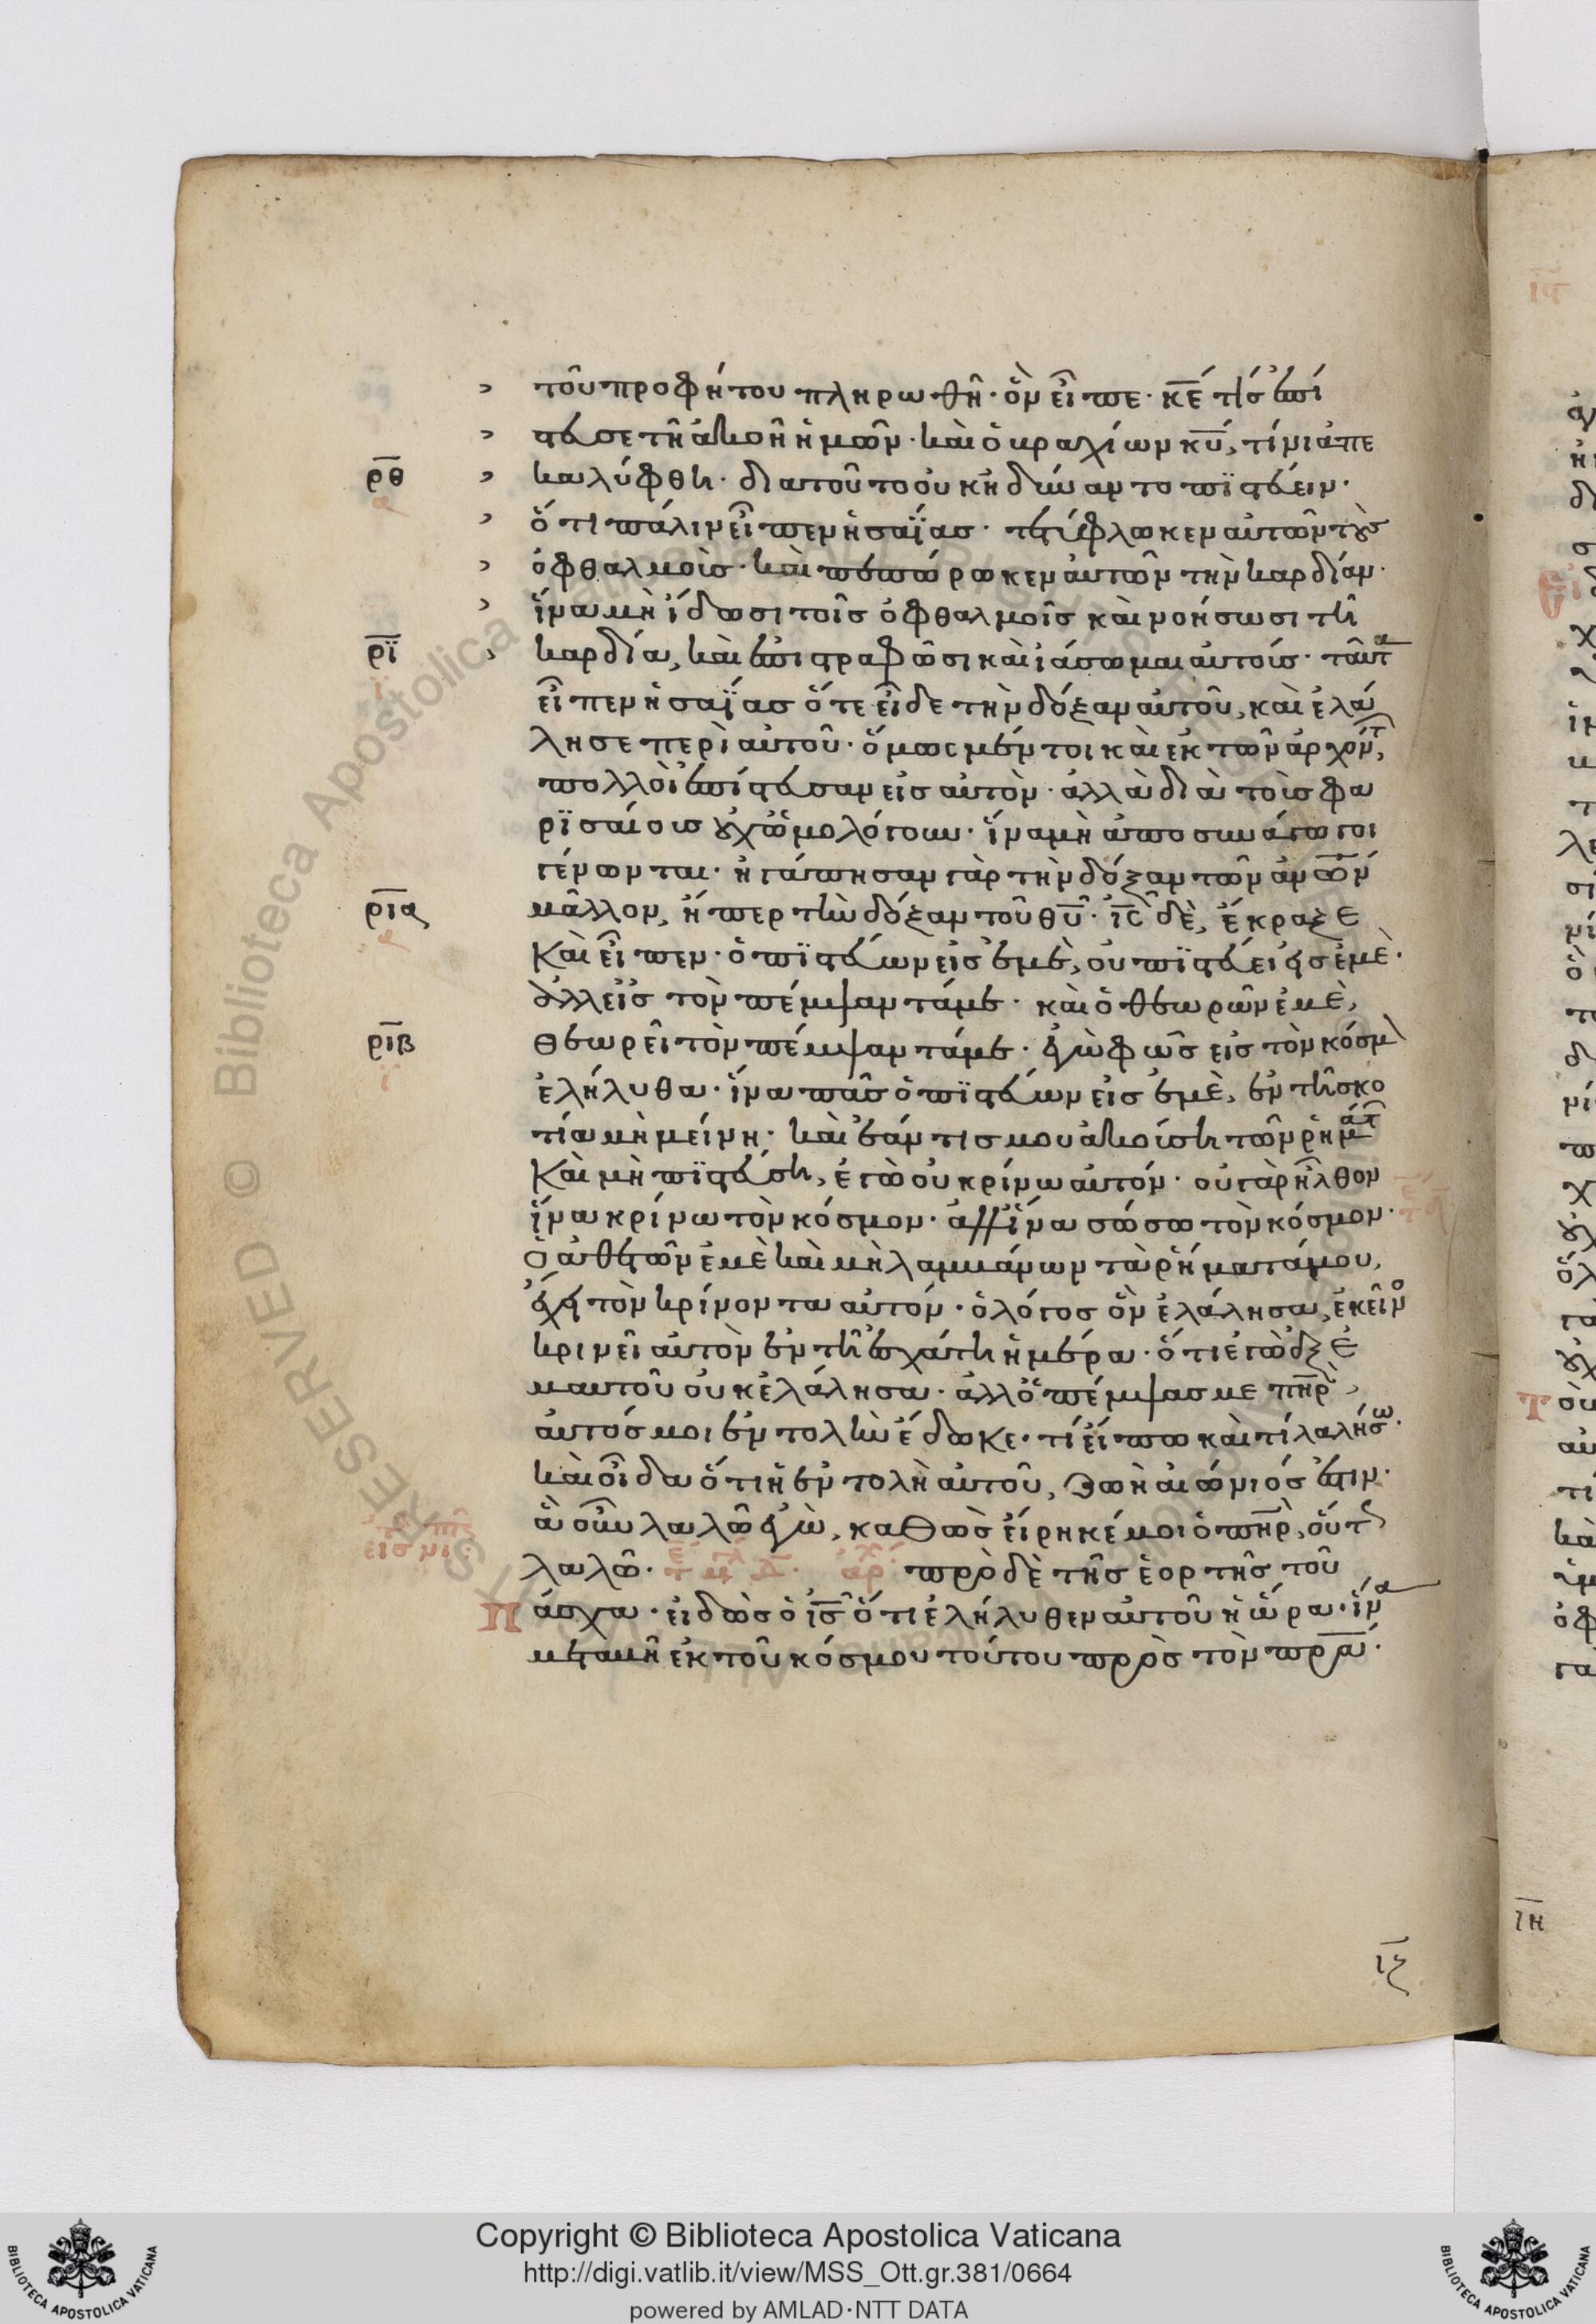 τοῦ προφήτου πληρωθῆ· ὃν εἶπε· κ̅ε̅ τίς ἐπί
στευσε τῆ ἀκοῆ ἡμῶν· καὶ ὁ βραχίων κ̅υ̅, τίνι ἀπε
ρ̅θ̅ καλύφθη· διατοῦτο οὐκ ἠδύναντο πϊστεύειν·
ὅτι πάλιν εἶπεν ἡσαΐας· τετύφλωκεν αὐτῶν τοὺς
ὀφθαλμοὺς· καὶ πεπώρωκεν αὐτῶν τὴν καρδίαν·
ἵνα μὴ ἴδωσι τοῖς ὀφθαλμοῖς καὶ νοήσωσι τῆ
ρ̅ϊ̅ καρδία, καὶ ἐπιστραφῶσι καὶ ἰάσωμαι αὐτούς· ταῦτα
εἶπεν ἡσαΐας ὅτε εἶδε τὴν δόξαν αὐτοῦ, καὶ ἐλά
λησε περὶ αὐτοῦ· ὅμως μέντοι καὶ ἐκ τῶν ἀρχόντ,
πολλοὶ ἐπίστευσαν εἰς αὐτὸν· ἀλλὰ διὰ τοὺς φα
ρϊσαίους οὐχ ὡμολόγουν· ἵνα μὴ ἀποσυνάγωγοι
γένωνται· ἠγάπησαν γὰρ τὴν δόξαν τῶν αν̅ω̅ν
ρ̅ι̅α̅ μᾶλλον, ἤπερ τὴν δόξαν τοῦ θ̅υ̅· ι̅ς̅ δὲ, ἔκραξε
Καὶ εἶπεν· ὁ πϊστεύων εἰς ἐμὲ, οὐ πϊστεύει εἰς ἐμὲ·
ἀλλ εἰς τὸν πέμψαντά με· καὶ ὁ θεωρῶν ἐμὲ,
ρ̅ι̅β̅ θεωρεῖ τὸν πέμψαντά με· ἐγὼ φῶς εἰς τὸν κόσμ
ἐλήλυθα· ἵνα πᾶς ὁ πϊστεύων εἰς ἐμὲ, ἐν τῆ σκο
τία μὴ μείνη· καὶ ἐάν τις μου ἀκούση τῶν ῥημάτ
Καὶ μὴ πϊστεύση, ἐγὼ οὐ κρίνω αὐτόν· οὐ γὰρ ἦλθον
ἵνα κρίνω τὸν κόσμον· ἀλλ ἵνα σώσω τὸν κόσμον·
ὁ ἀθετῶν ἐμὲ καὶ μὴ λαμβάνων τὰ ῥήματά μου,
ἔχει τὸν κρίνοντα αὐτόν· ὁ λόγος ὃν ἐλάλησα, ἐκεῖνο
κρινεῖ αὐτὸν ἐν τῆ ἐσχάτη ἡμέρα· ὅτι ἐγὼ ἐξ ἐ
μαυτοῦ οὐκ ἐλάλησα· ἀλλ ὁ πέμψας με π̅η̅ρ̅,
αὐτός μοι ἐντολὴν ἔδωκε· τί εἴπω καὶ τί λαλήσω·
καὶ οἶδα ὅτι ἡ ἐντολὴ αὐτοῦ, ζωὴ αἰώνιός ἐστιν·
ἃ οὖν λαλῶ ἐγὼ, καθὼς εἴρηκέ μοι ὁ π̅η̅ρ̅, οὕτ
λαλῶ· πρὸ δὲ τῆς ἑορτῆς τοῦ
Πάσχα· εἰδὼς ὁ ι̅ς̅ ὅτι ἐλήλυθεν αὐτοῦ ἡ ὥρα· ἵνα
μεταβῆ ἐκ τοῦ κόσμου τούτου πρὸς τὸν π̅ρ̅α̅·
Copyright © Biblioteca Apostolica Vaticana
http://digi.vatlib.it/view/MSS_Ott.gr.381/0664
powered by AMLAD·NTT DATA